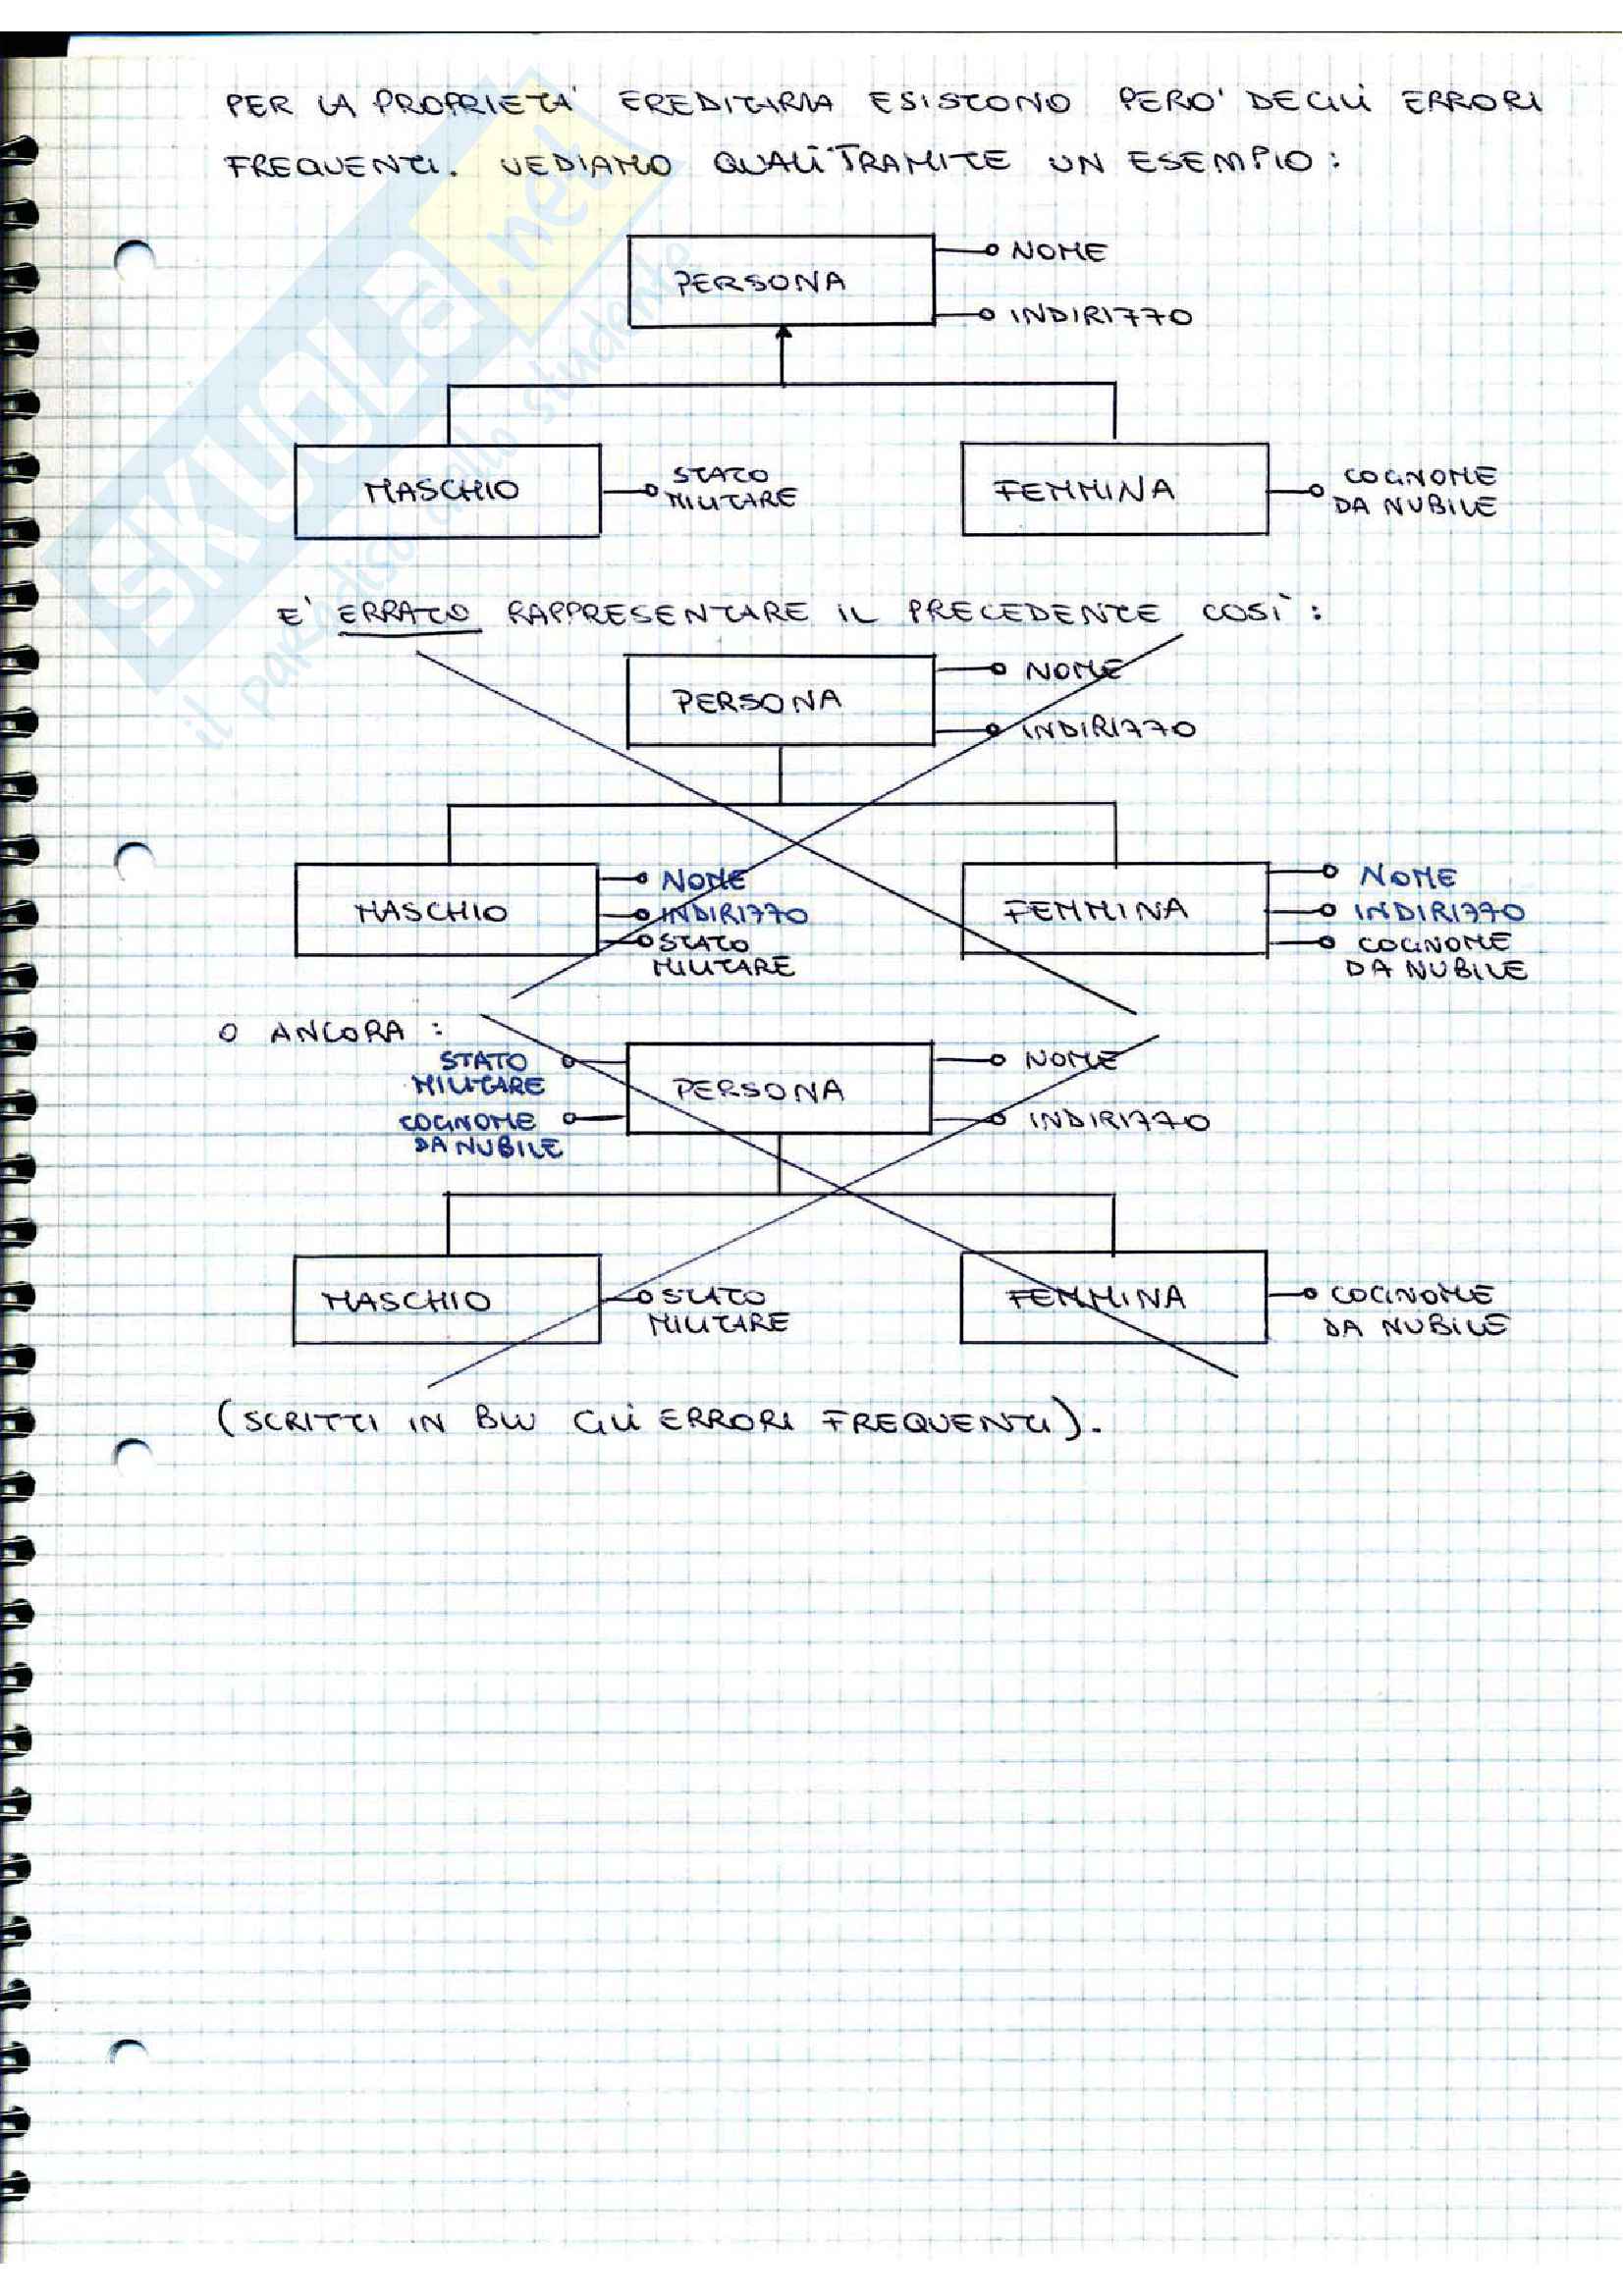 PER LA PROPRIETA' EREDITARIA ESISTONO PERO' DEGLI ERRORI
FREQUENTI. VEDIAMO QUALI TRAMITE UN ESEMPIO:
PERSONA
NOME
INDIRIZZO
MASCHIO
STATO
MILITARE
FEMMINA
COGNOME
DA NUBILE
E' ERRATO RAPPRESENTARE IL PRECEDENTE COSÌ:
PERSONA
NOME
INDIRIZZO
MASCHIO
NOME
INDIRIZZO
STATO
MILITARE
FEMMINA
NOME
INDIRIZZO
COGNOME
DA NUBILE
O ANCORA:
STATO
MILITARE
COGNOME
DA NUBILE
PERSONA
NOME
INDIRIZZO
MASCHIO
STATO
MILITARE
FEMMINA
COGNOME
DA NUBILE
(SCRITTI IN BLU GLI ERRORI FREQUENTI).
SKUOLA.net
il paradiso dello studente